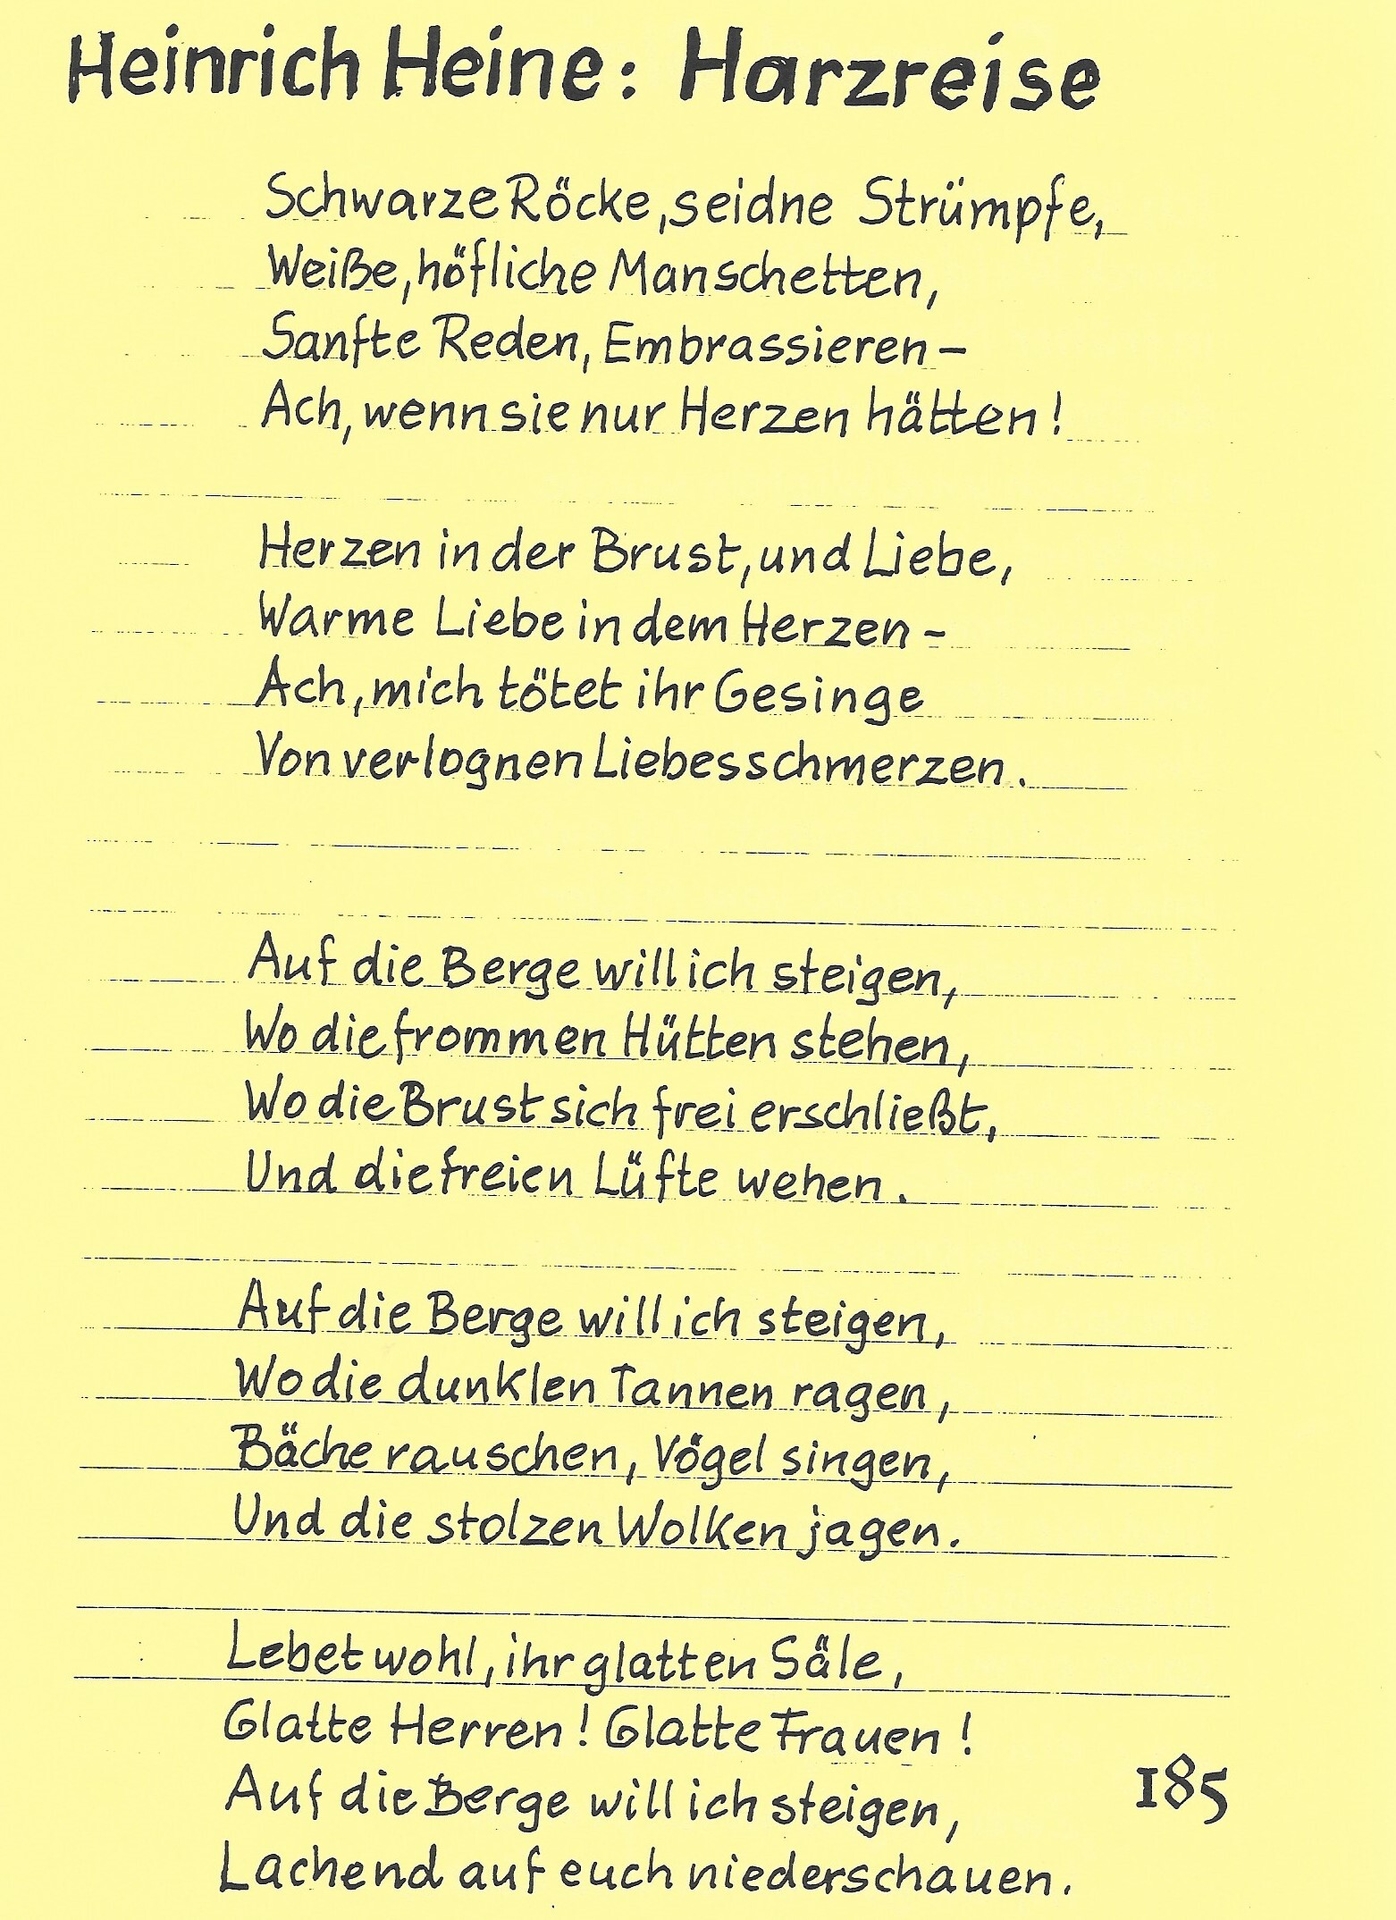 Heinrich Heine: Harzreise
Schwarze Röcke, seidne Strümpfe,
Weiße, höfliche Manschetten,
Sanfte Reden, Embrassieren –
Ach, wenn sie nur Herzen hätten!
Herzen in der Brust, und Liebe,
Warme Liebe in dem Herzen –
Ach, mich tötet ihr Gesinge
Von verlognen Liebesschmerzen.
Auf die Berge will ich steigen,
Wo die frommen Hütten stehen,
Wo die Brust sich frei erschließt,
Und die freien Lüfte wehen.
Auf die Berge will ich steigen,
Wo die dunklen Tannen ragen,
Bäche rauschen, Vögel singen,
Und die stolzen Wolken jagen.
Lebet wohl, ihr glatten Säle,
Glatte Herren! Glatte Frauen!
Auf die Berge will ich steigen,
Lachend auf euch niederschauen.
185